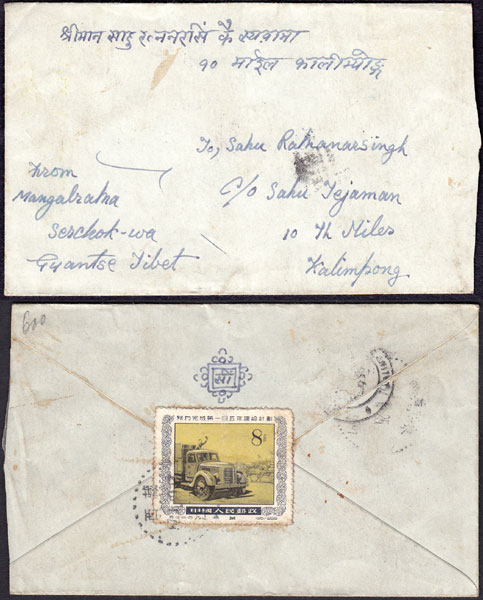 श्रीमान साहु रत्ननरसिं कै
१० माईल कालिम्पोङ्ग
To, Sahu Ratnanarsingh
C/o Sahu Tejaman
10 Th Miles
Kalimpong
From
Mangalratna
Serchok-wa
Gyantse Tibet
600
努力完成第一个五年建设计划
8
中国人民邮政
西藏